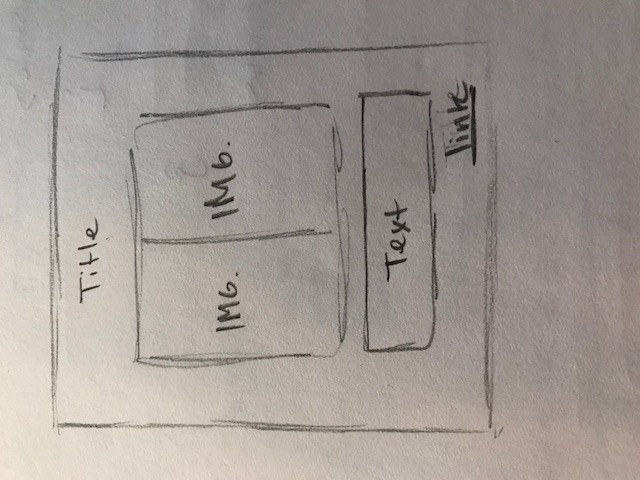 Title
IMG. IMG.
Text
link